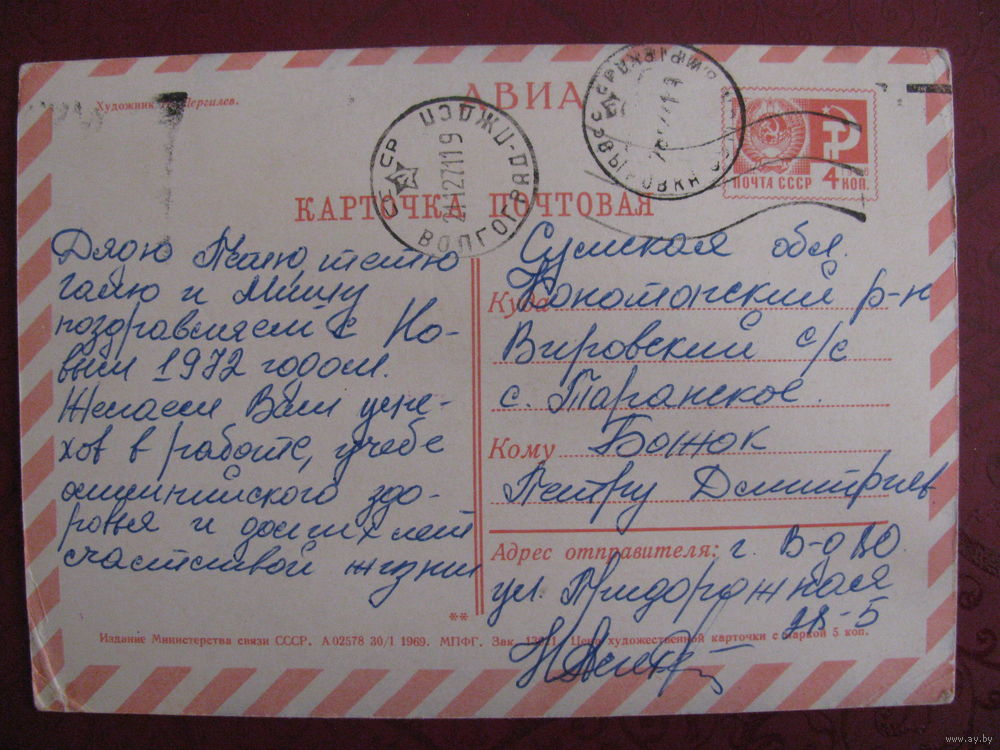 Художник Дергилев.
АВИА
КАРТОЧКА ПОЧТОВАЯ
СССР
ВОЛГОГРАД
ПОЧТА СССР 4 КОП.
Дядю Петю, тетю
Галю и Мишу
поздравляем с Но-
вым 1972 годом.
Желаем Вам успе-
хов в работе, учебе
олимпийского здо-
ровья и долгих лет
счастливой жизни
Сумская обл.
Куда Конотопский р-н
Вировский с/с
с. Таранское.
Кому Божок
Петру Дмитриев
Адрес отправителя: г. В-д
ул. Придорожная
28-5
**
Издание Министерства связи СССР. А 02578 30/I 1969. МПФГ. Зак. Цена художественной карточки с маркой 5 коп.
www.ay.by